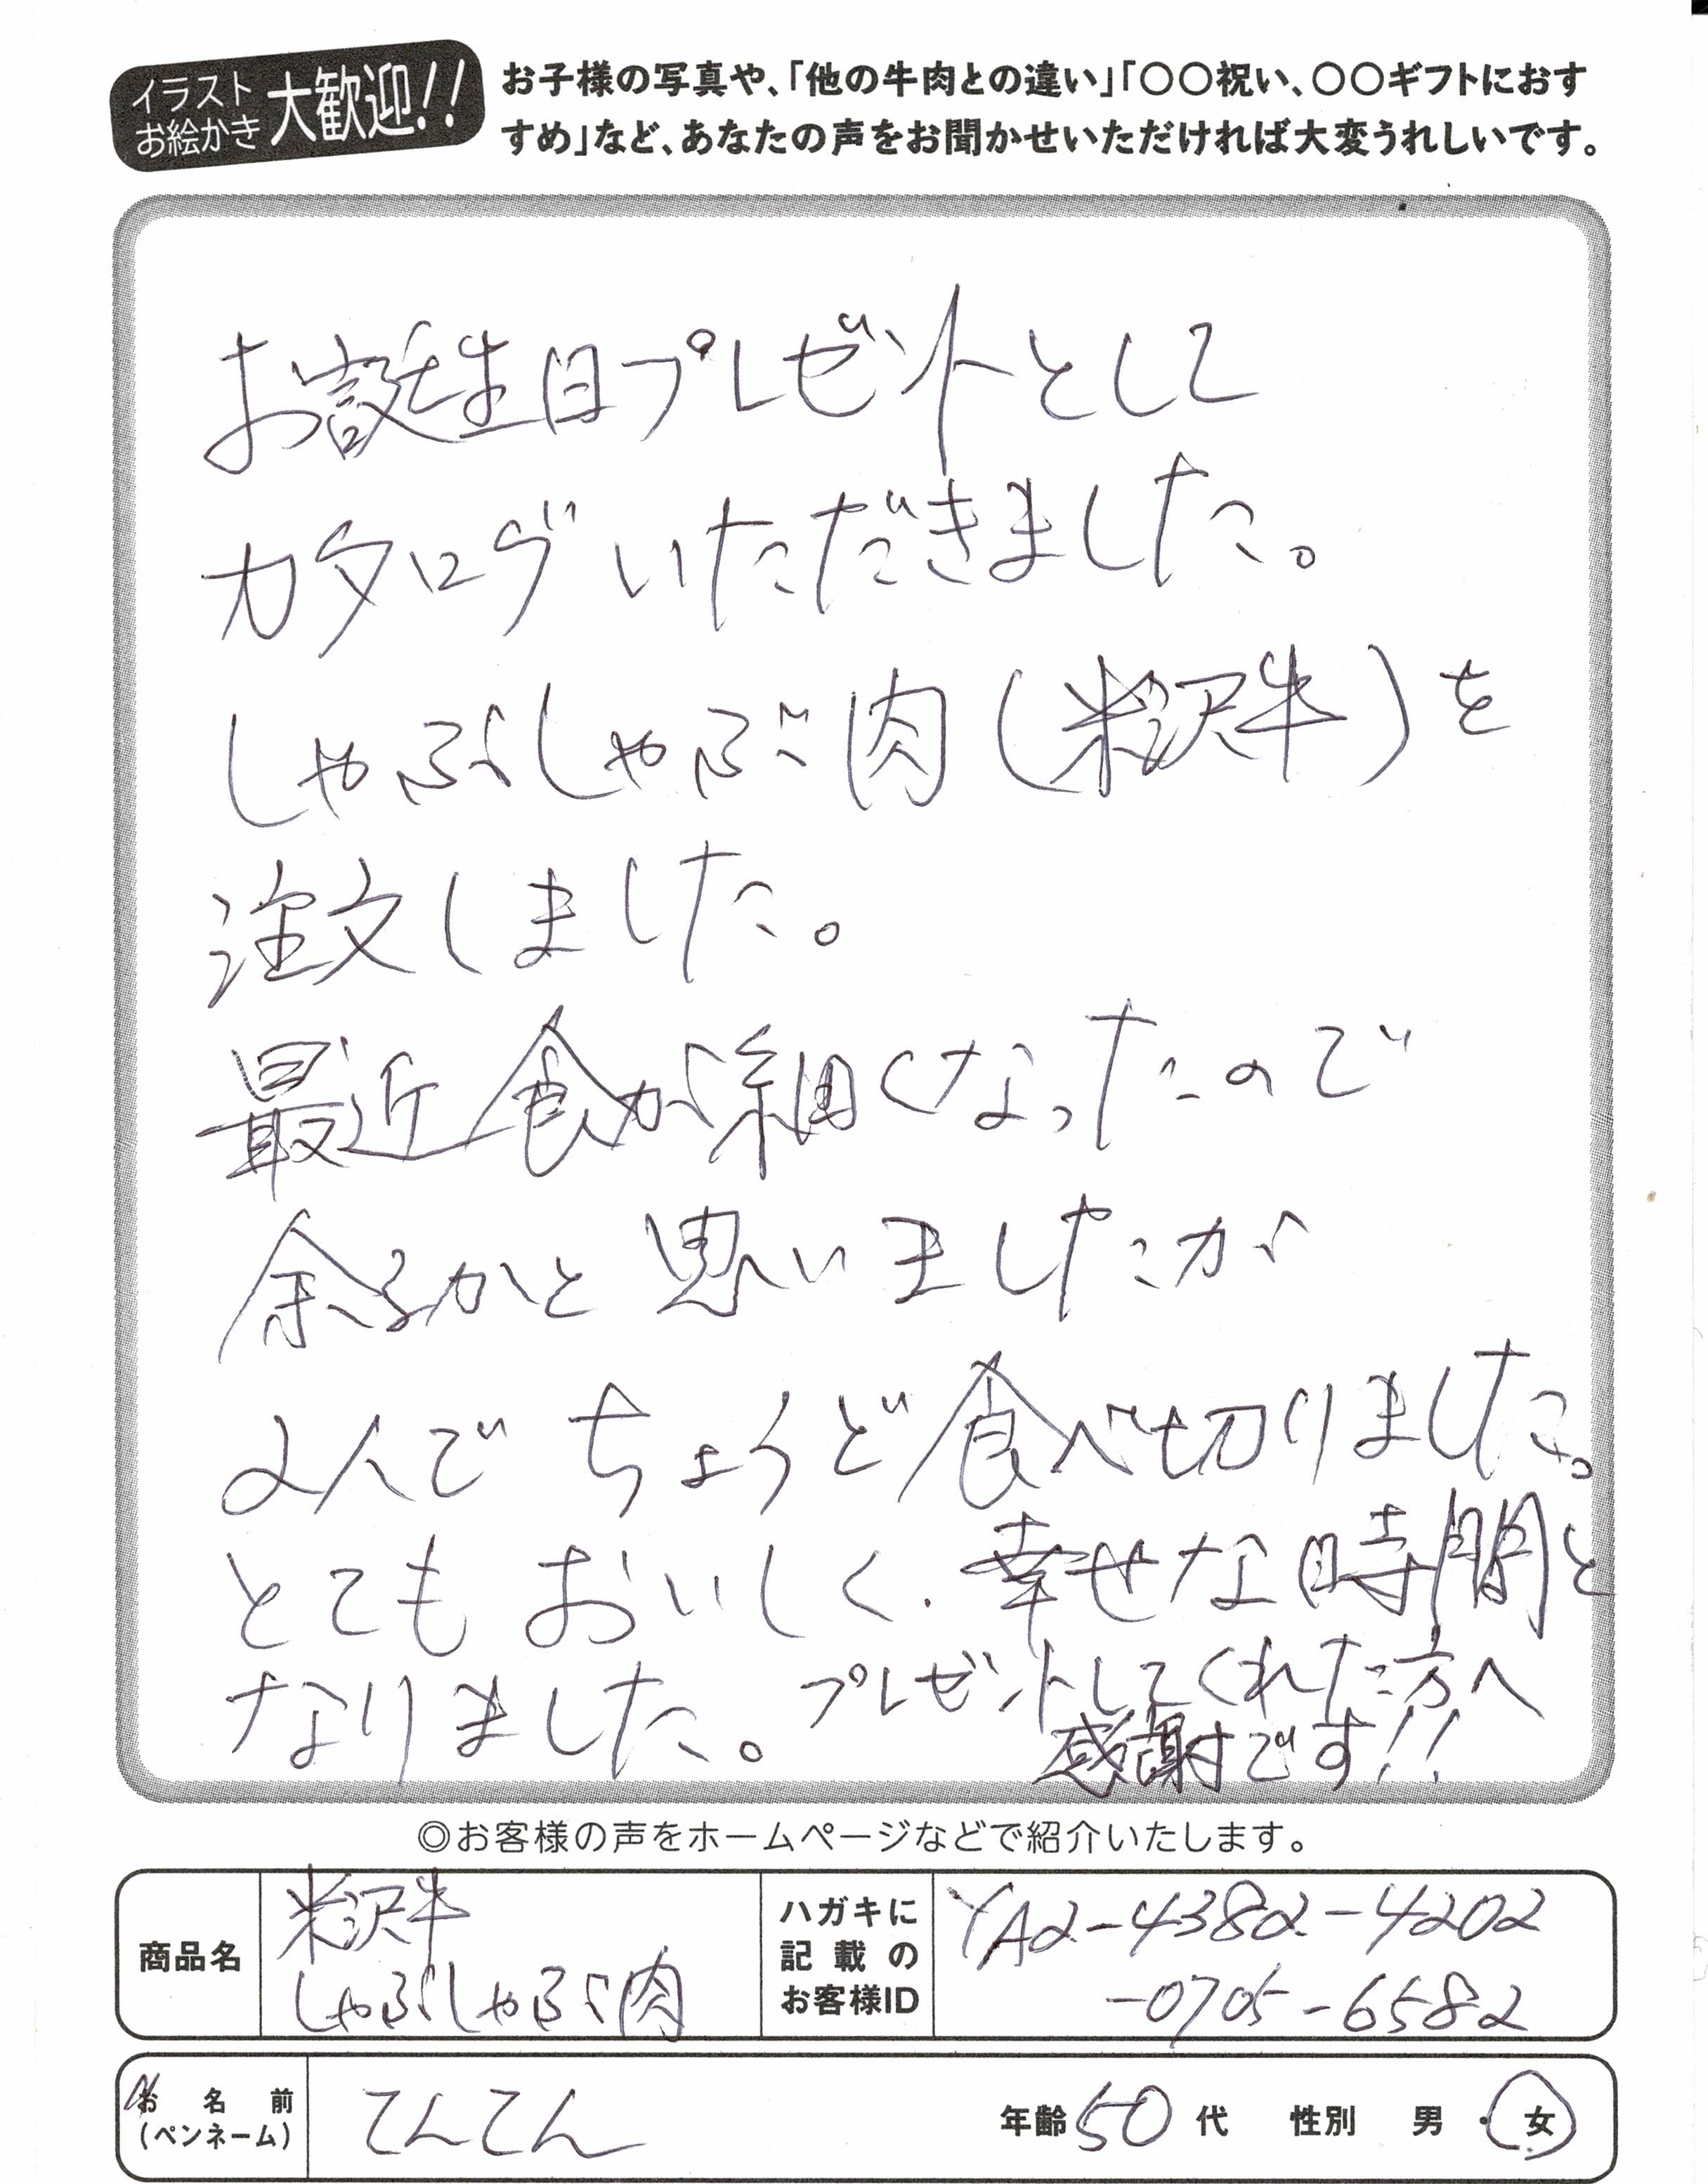 イラスト
お絵かき
大歓迎!!
お子様の写真や、「他の牛肉との違い」「〇〇祝い、〇〇ギフトにおす
すめ」など、あなたの声をお聞かせいただければ大変うれしいです。
お誕生日プレゼントとして
カタログいただきました。
しゃぶしゃぶ肉(米沢牛)を
注文しました。
最近食が細くなったので
余るかと思いましたが
2人でちょうど食べ切りました。
とてもおいしく、幸せな時間と
なりました。プレゼントしてくれた方へ
感謝です!!
◎お客様の声をホームページなどで紹介いたします。
商品名
米沢牛
しゃぶしゃぶ肉
ハガキに
記載の
お客様ID
YA2-4382-4202
-0705-6582
お名前
(ペンネーム)
てんてん
年齢50代 性別 男・女